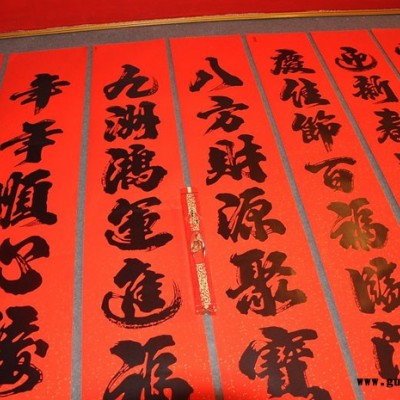 迎新春
慶佳節百福臨
八方財源聚寶
九洲鴻運進福
年年順心
www.gu